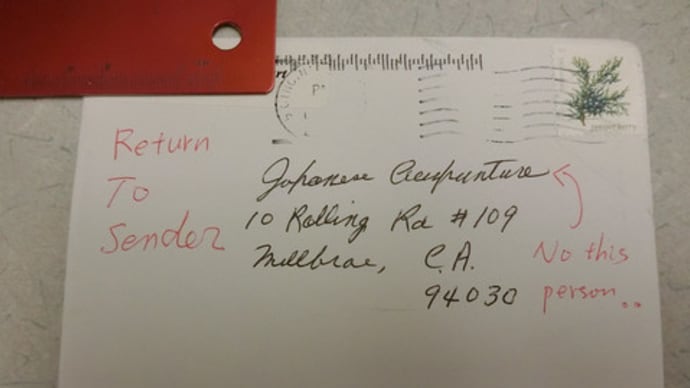 Return
To
Sender
Japanese Acupunture
10 Rolling Rd #109
Millbrae, C.A.
94030
No this
person..